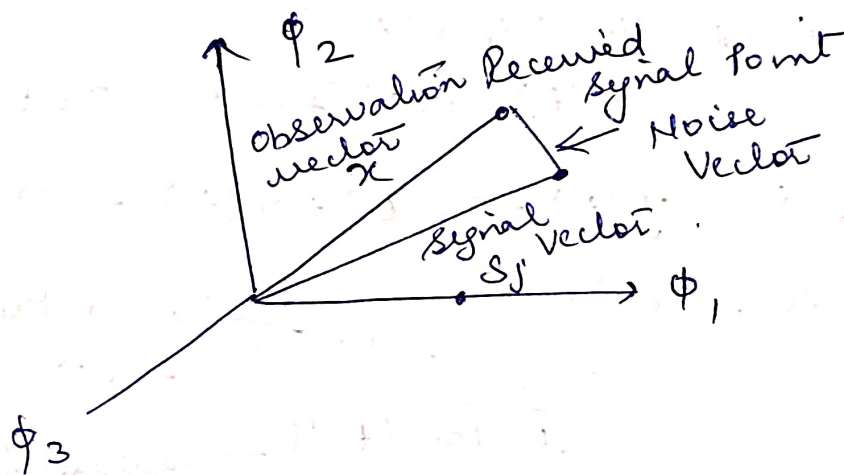 ϕ2
Observation Received
vector
x
Signal Point
Noise
Vector
Signal Vector
Sj
ϕ1
ϕ3